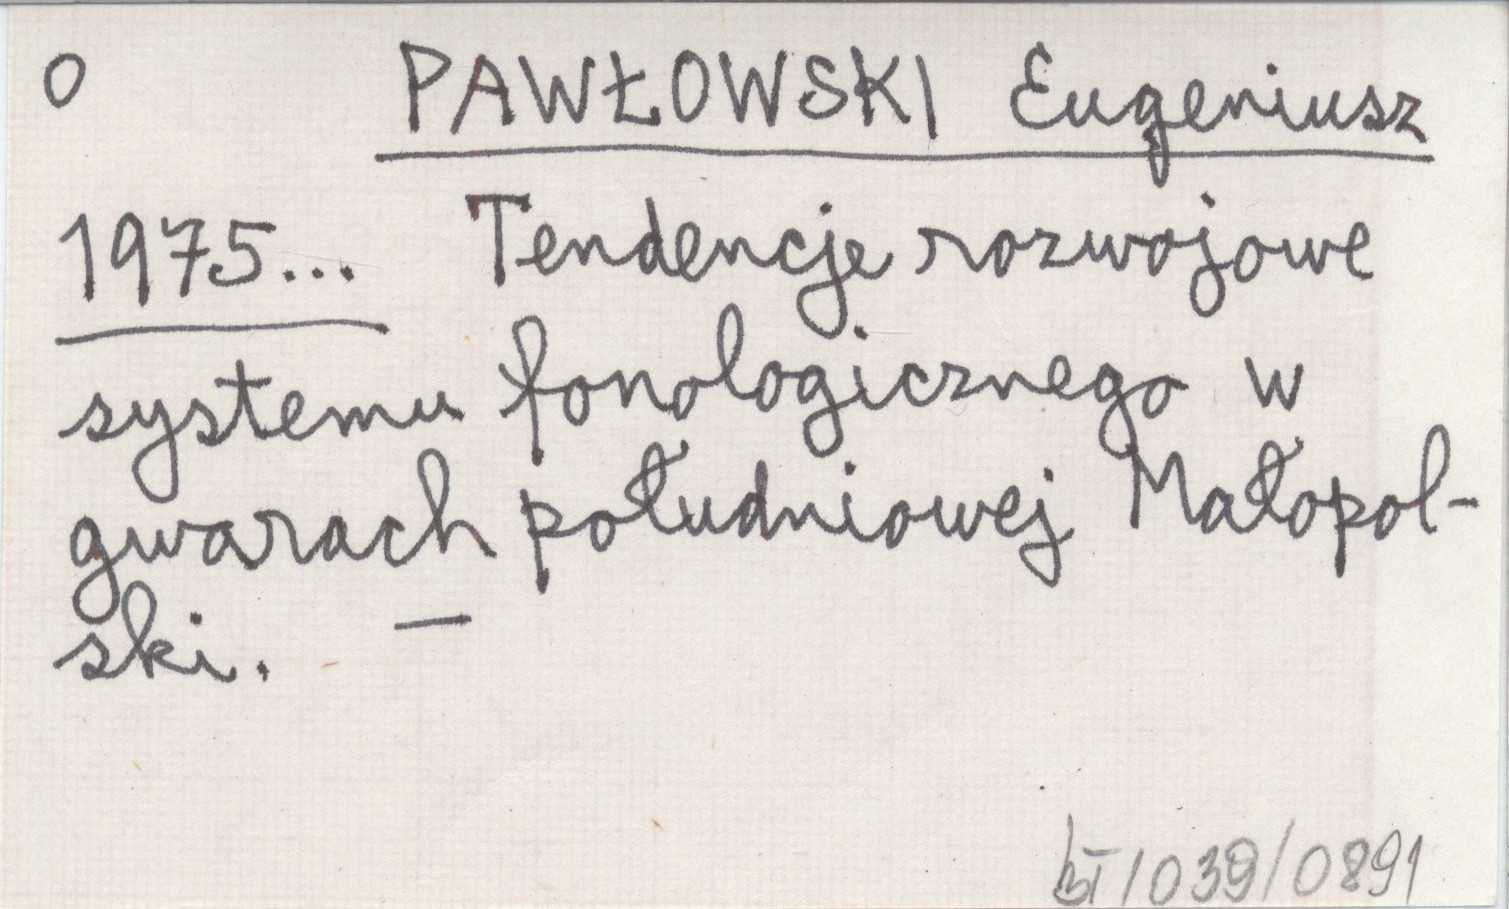 O PAWŁOWSKI Eugeniusz
1975... Tendencje rozwojowe
systemu fonologicznego w
gwarach południowej Małopol-
ski. —
BT/039/0891